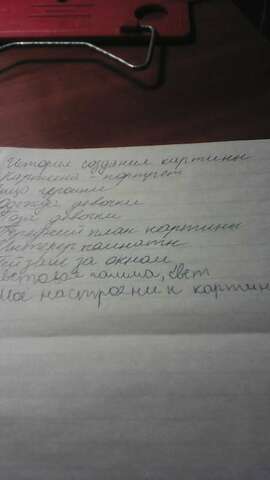 История создания картины
Картина - портрет
лицо героини
Одежда девочки
Поза девочки
план картины
Интерьер комнаты
за окном
цветовая гамма, свет
Мое настроени к картин